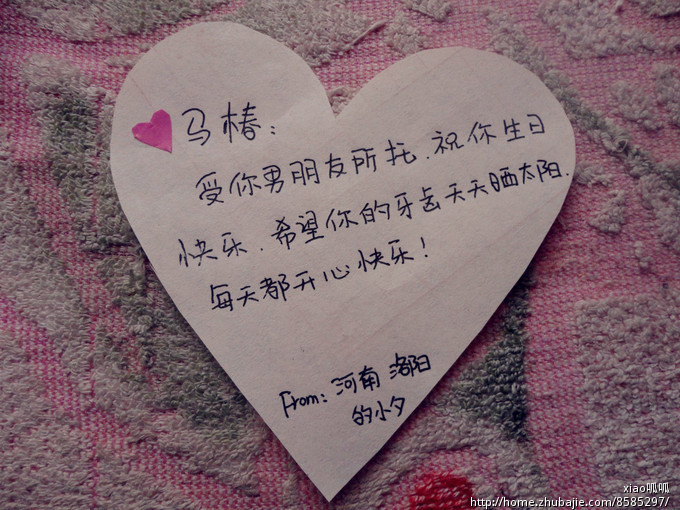 马椿：
受你男朋友所托，祝你生日
快乐，希望你的牙齿天天晒太阳，
每天都开心快乐！
From：河南 洛阳
的小夕
xiao呱呱
http://home.zhubajie.com/8585297/